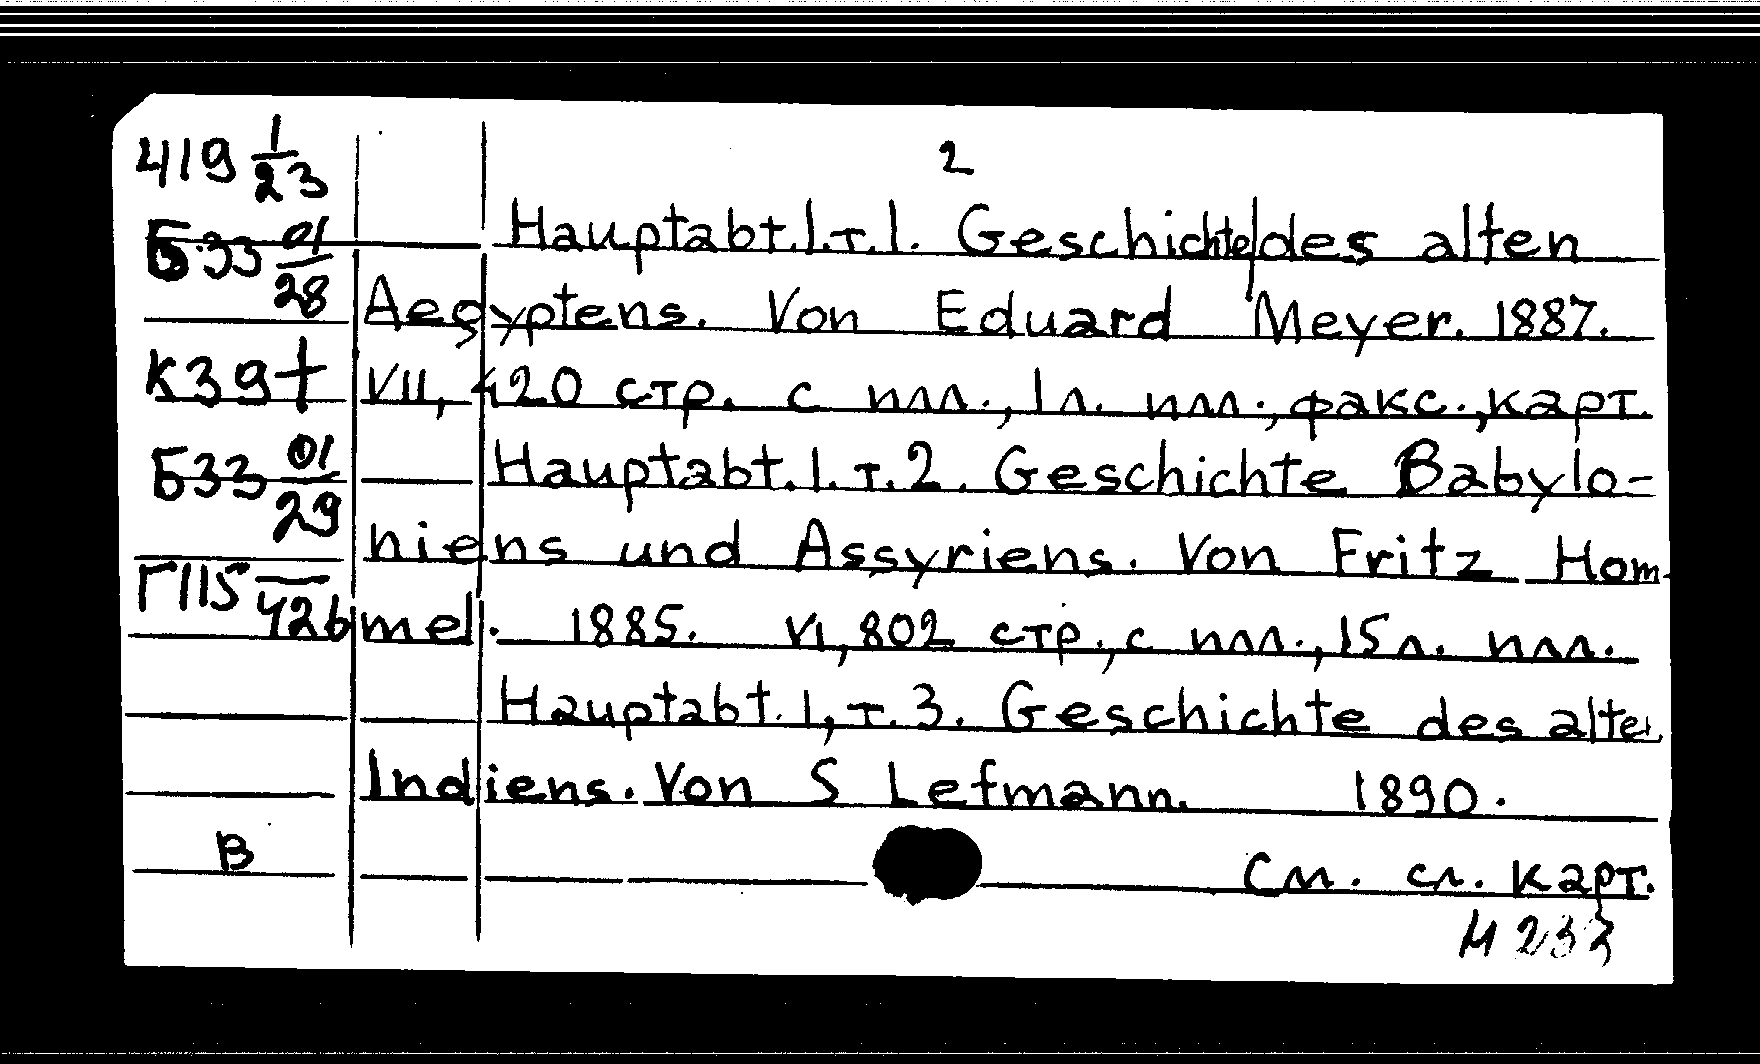 2
419 1/23
Б33 01/28
К39+
Б33 01/29
Г115 —/426
В
Hauptabt.1.т.1. Geschichte des alten
Aegyptens. Von Eduard Meyer. 1887.
VII, 420 стр. с илл., 1 л. илл., факс., карт.
Hauptabt.1.т.2. Geschichte Babylo-
niens und Assyriens. Von Fritz Hom-
mel. 1885. VI, 802 стр., с илл., 15 л. илл.
Hauptabt.1, т.3. Geschichte des alte
Indiens. Von S Lefmann. 1890.
См. сл. карт.
И 233